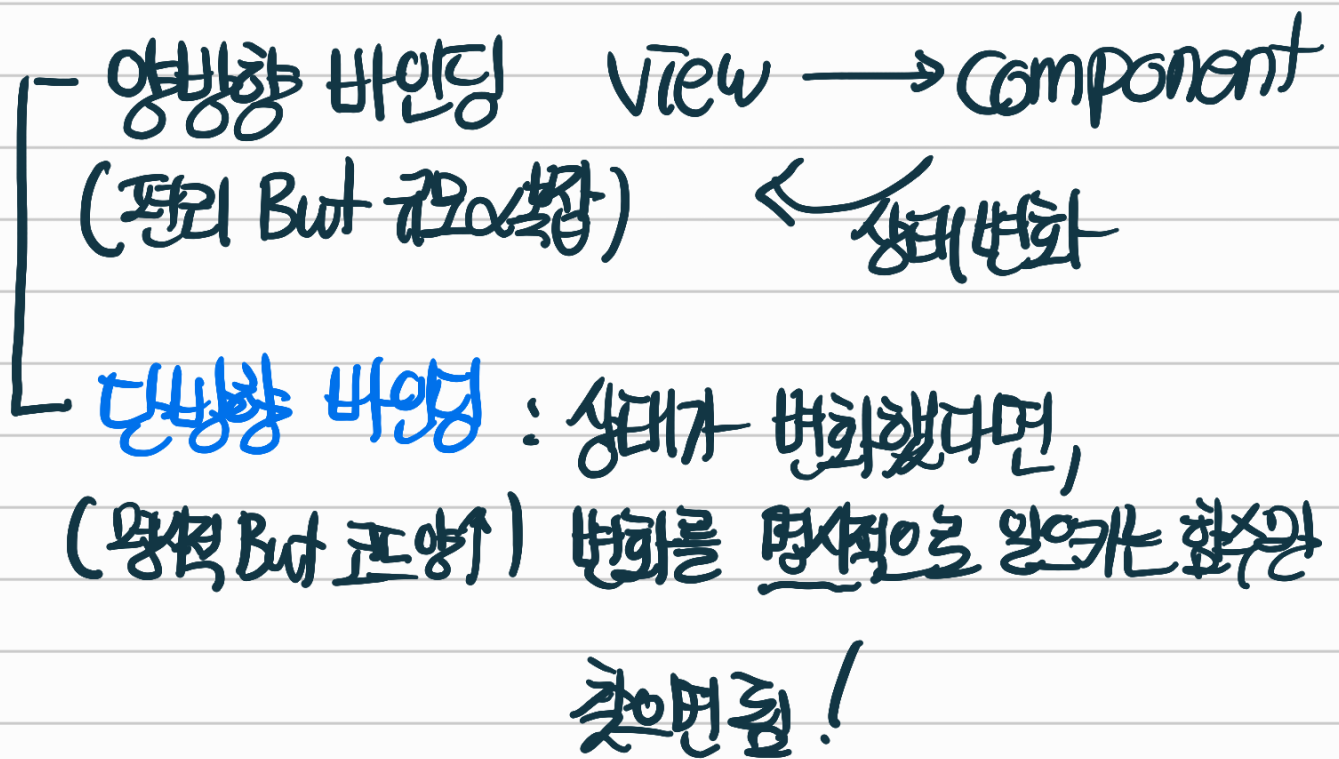 양방향 바인딩 view → component
(편리 But 규모∝복잡) ← 상태변화
단방향 바인딩 : 상태가 변화했다면,
(명시적 But 코드양↑) 변화를 명시적으로 일으키는 함수만
찾으면 됨!